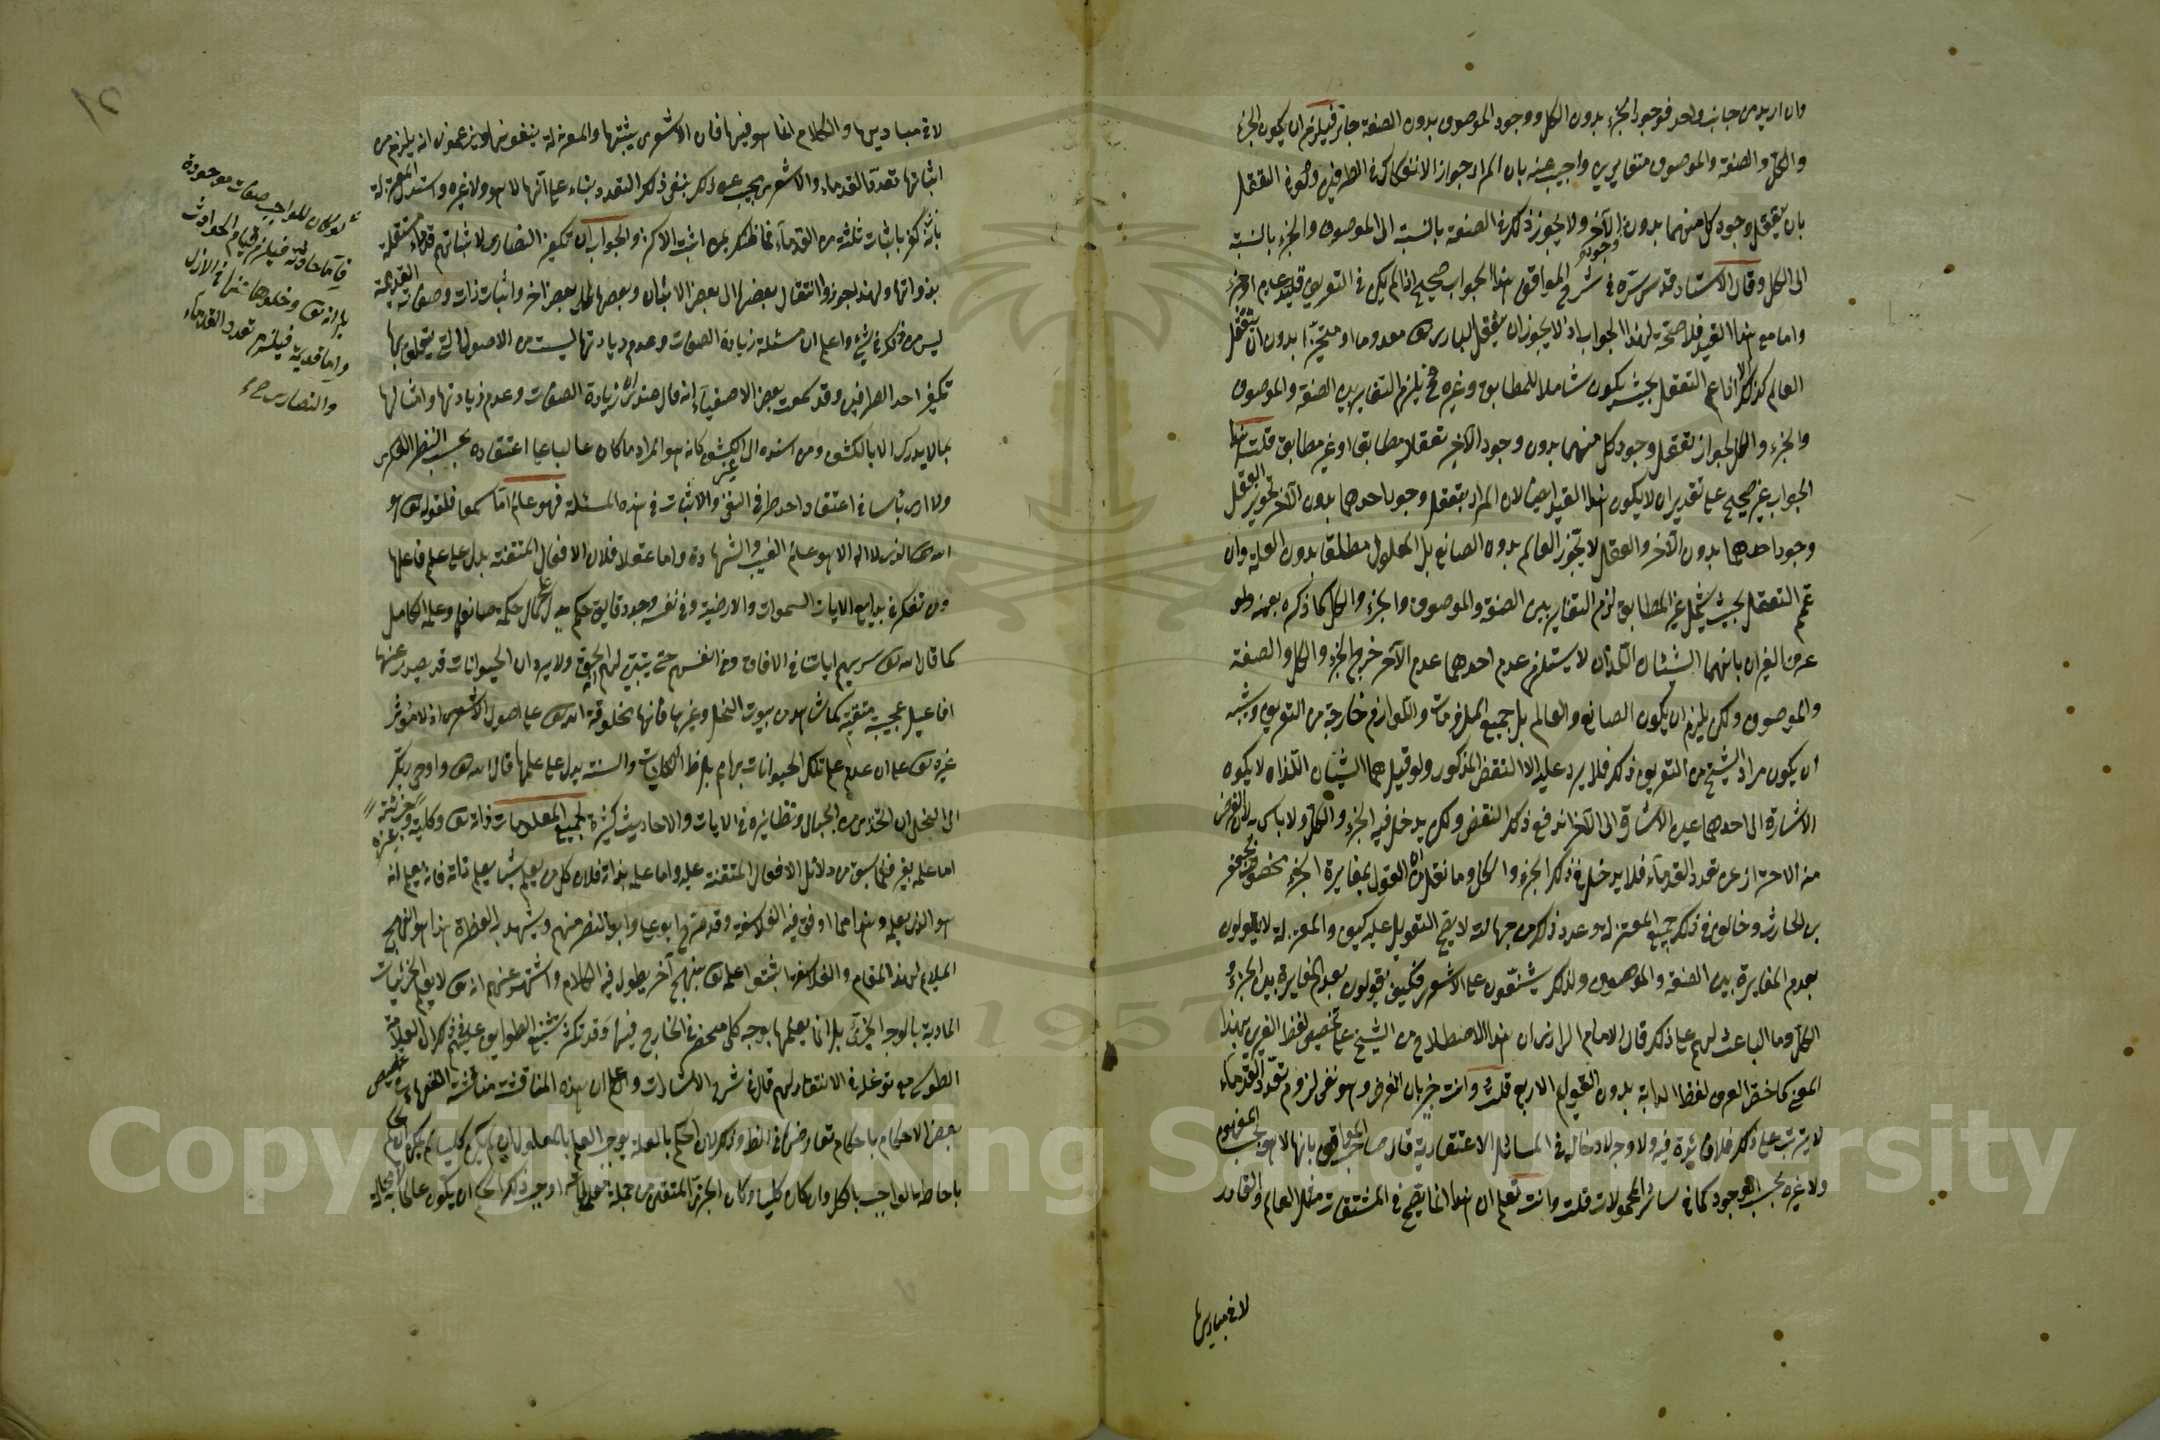 وان اريد من جانب واحد فوجود الجزء بدون الكل ووجود الموصوف بدون الصفة جائز فيلزم ان يكون الجزء
والكل والصفة والموصوف متغايرين واجيب عنه بان المراد جواز الانفكاك من الطرفين وفى التعقل
بان يتعقل وجود كل منهما بدون الآخر ولا يجوز ذلك في الصفة بالنسبة الى الموصوف والجزء بالنسبة
الى الكل وقال الاستاد قدس سره في شرح المواقف هذا الجواب صحيح اذا لم يكن في التعريف قيد عدم او حيز
واما مع هذا القيد فلا صحة لهذا الجواب اذ لا يجوز ان يتعقل البارى تعالى معدوما او متحيزا بدون ان يتعقل
العالم كذلك الا اذا عمم التعقل بحيث يكون شاملا للمطابق وغيره فح يلزم التغاير بين الصفة والموصوف
والجزء والكل لجواز تعقل وجود كل منهما بدون وجود الآخر تعقلا مطابقا او غير مطابق قلت هذا
الجواب غير صحيح على تقدير ان لا يكون هذا القيد ايضا لان المراد بتعقل وجود احدهما بدون الآخر تجويز العقل
وجود احدهما بدون الآخر والعقل لا يجوز العالم بدون الصانع بل المعلول مطلقا بدون العلة وان
عمم التعقل بحيث يشمل غير المطابق لزم التغاير بين الصفة والموصوف والجزء والكل كما ذكره بعينه ولو
عرف الغيران بانهما الشيئان اللذان لا يستلزم عدم احدهما عدم الآخر خرج الجزء والكل والصفة
والموصوف ولكن يلزم ان يكون الصانع والعالم بل جميع الملزومات واللوازم خارجة من التعريف ويشبه
ان يكون مراد الشيخ من التعريف ذلك فلا يرد عليه الا النقض المذكور ولو قيل هما الشيئان اللذان لا يكون
الاشارة الى احدهما عين الاشارة الى الآخر اندفع ذلك النقض ولكن يدخل فيه الجزء والكل ولا باس به لان الغرض
منه الاحتراز عن تعدد القدماء فلا يدخل في ذلك الجزء والكل وما نقل ان القول بمغايرة الجزء مخصوص بجعفر
بن الحارث وخالف في ذلك جميع المعتزلة وعد ذلك من جهالته لا يصح التعويل عليه كيف والمعتزلة لا يقولون
بعدم المغايرة بين الصفة والموصوف ولذلك يشنعون على الاشعرى فكيف يقولون بعدم المغايرة بين الجزء و
الكل وما الباعث لهم على ذلك قال الامام الرازى ان هذا الاصطلاح من الشيخ على تخصيص لفظ الغير بهذا
المعنى كما خص العرف لفظ الدابة بدون القوايم الاربع قلت وانت خبير بان الغرض وهو نفى لزوم تعدد القدماء
لا يترتب على ذلك فلا فائدة فيه ولا وجه لادخاله في المسائل الاعتقادية قال صاحب المواقف بانها لا هو بحسب المفهوم
ولا غيره بحسب الوجود كما في سائر المحمولات قلت وانت تعلم ان هذا انما يصح في المشتقات مثل العالم والقادر
لا في مباديها
لا في مباديها والكلام انما هو فيها فان الاشعرى يثبتها والمعتزلة ينفونها ويزعمون انه يلزم من
اثباتها تعدد القدماء والاشعرى يجيب عن ذلك بنفى ذلك التعدد بناء على انها لا هو ولا غيره واستدل المعتزلة
بانه كفر باثبات ثلثة من القدماء فما ظنكم بمن اثبت الاكثر والجواب ان تكفير النصارى لاثباتهم قدماء مستقلة
بذواتها ولهذا يجوزوا انتقال بعضها الى بعض الابدان وبعضها الى بعض اخر واثبات ذات وصفاته القديمة
ليس من ذلك في شئ واعلم ان مسئلة زيادة الصفات وعدم زيادتها ليست من الاصول التى يتعلق بها
تكفير احد الطرفين وقد سمعت بعض الاصفياء انه قال عندى ان زيادة الصفات وعدم زيادتها وامثالها
مما لا يدرك الا بالكشف ومن اسنده الى غير الكشف كانه هو المراد ما كان غالبا على اعتقاده بحسب النظر الفكرى
ولا ارى باسا في اعتقاد احد طرفى النفى والاثبات في هذه المسئلة فهو عالم اما سمعا فلقوله تعالى هو
الله تعالى الذى لا اله الا هو عالم الغيب والشهادة واما عقلا فلان الافعال المتقنة يدل على علم فاعلها
ومن تفكر في بدايع الايات السموات والارضية وفى نفسه وجد دقايق حكم يدل على كمال حكمة صانعها وعلمه الكامل
كما قال الله تعالى سنريهم اياتنا في الافاق وفى انفسهم حتى يتبين لهم انه الحق ولا يرد ان الحيوانات قد يصدر عنها
افاعيل عجيبة متقنة كما يشاهد من بيوت النحل وغيرها فانها مخلوقة لله تعالى على اصول الاشعرى اذ لا مؤثر
غيره تعالى على ان عدم علم تلك الحيوانات بها بل ظ الكتاب والسنة يدل على علمها قال الله تعالى واوحى ربك
الى النحل ان اتخذى من الجبال ونظائره في الايات والاحاديث كثيرة لجميع المعلومات ذاته تعالى وكليه وجزئيه وغيره
اما علمه بغيره فلما سبق من دلائل الافعال المتقنة عليه واما علمه بذاته فلان كل من يعلم شيئا يعلم ذاته فانه يعلم انه
هو الذى يعلمه وهذا مما اوفق فيه الفلاسفة وقد صرح ابو على وابو النصر منهم ويشهد به الفطرة هذا هو النهج
الملايم لهذا المقام والفلاسفة اثبتوا علمه تعالى بنهج آخر يطول فيه الكلام واشتهر عنهم انه تعالى لا يعلم الجزئيات
المادية بالوجه الجزئى بل انما يعلمها بوجه كلى منحصر في الخارج فيها وقد تكثر تشنيع الطوايف عليهم في ذلك حتى ان العلامة
الطوسى مع توغله في الانتصار لهم قال في شرح الاشارات واعلم ان هذه المناقشة مناقشة الفقهاء في تخصيص
بعض الاحكام باحكام تعارضها في الظ وذلك لان الحكم بالعلة يوجب العلم بالمعلول ان لم يكن كليا لم يمكن ان يحكم
باحاطة الواجب بالكل وان كان كليا وكان الجزئى المتغير من جملة معلولاته اوجب ذلك الحكم ان يكون عالما به لا محالة
لو كان للواجب صفات موجودة
فاما حادثة فيلزم قيام الحوادث
بذاته تعالى وخلوها عنها في الازل
واما قديمة فيلزم تعدد القدماء
والنصارى